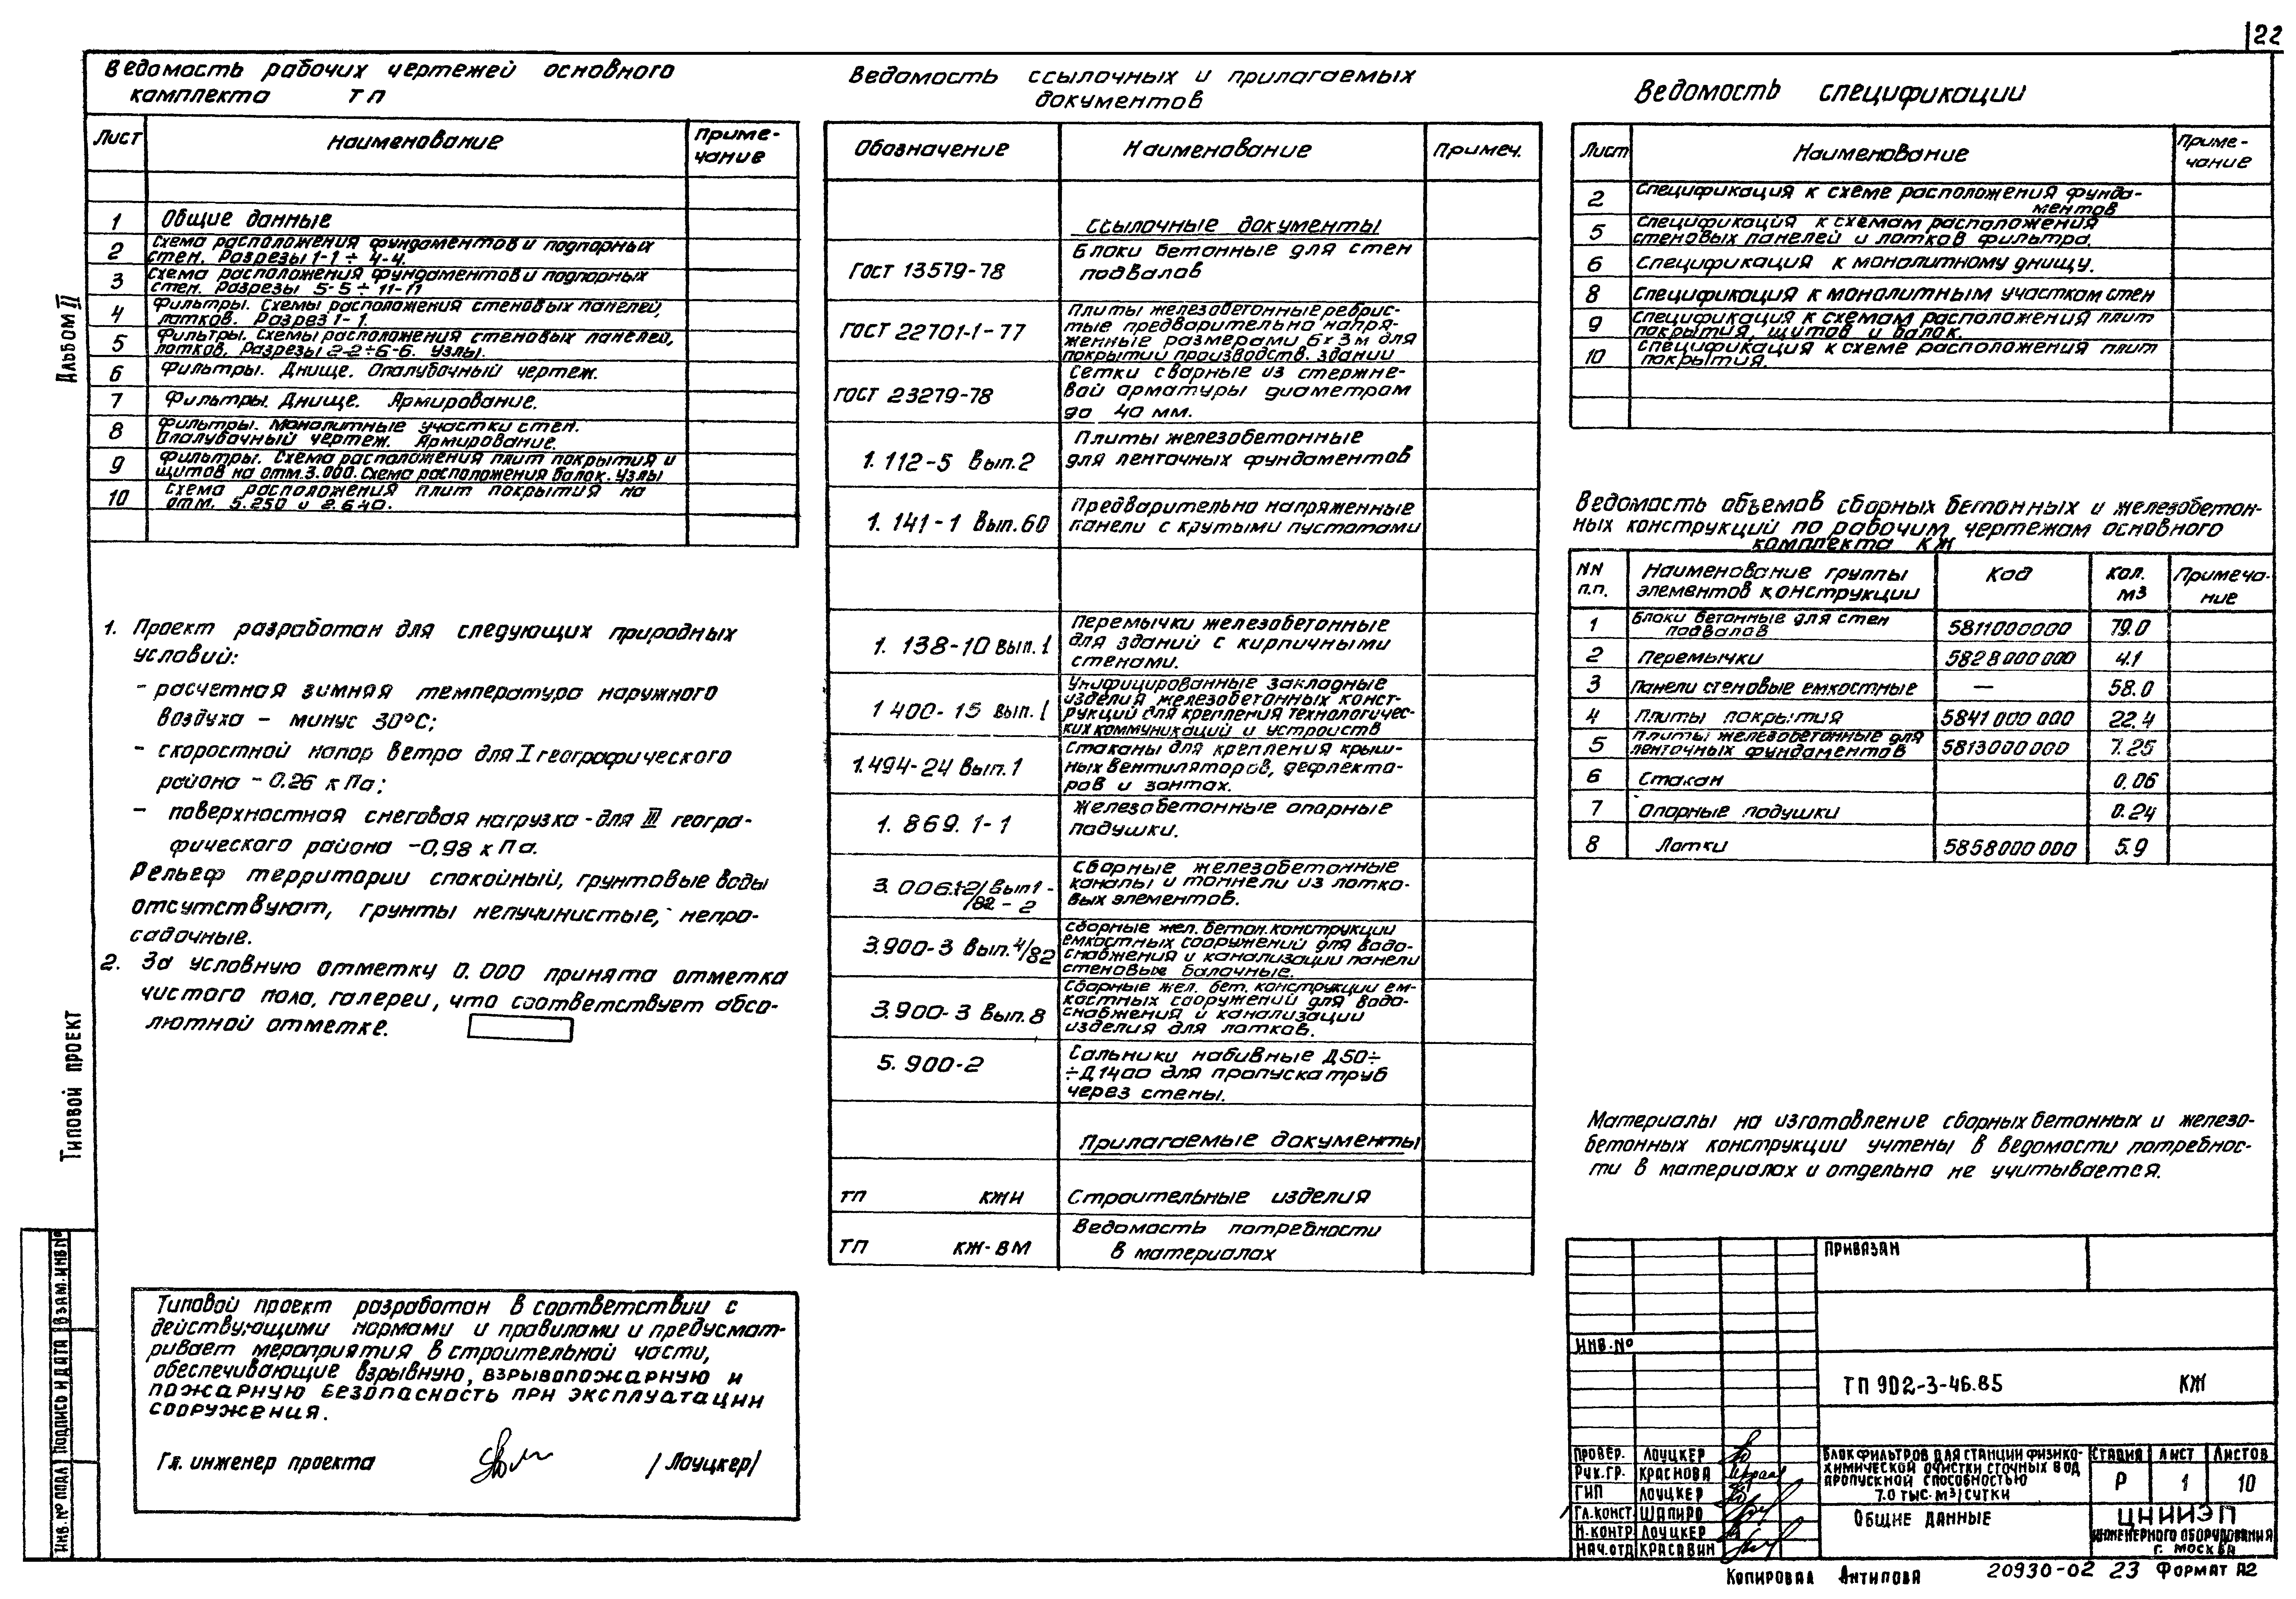 22
Ведомость рабочих чертежей основного
комплекта ТП
Лист Наименование Приме-
чание
1 Общие данные
2 Схема расположения фундаментов и подпорных
стен. Разрезы 1-1 ÷ 4-4.
3 Схема расположения фундаментов и подпорных
стен. Разрезы 5-5 ÷ 11-11
4 Фильтры. Схемы расположения стеновых панелей,
лотков. Разрез 1-1.
5 Фильтры. Схемы расположения стеновых панелей,
лотков. Разрезы 2-2÷6-6. Узлы.
6 Фильтры. Днище. Опалубочный чертеж.
7 Фильтры. Днище. Армирование.
8 Фильтры. Монолитные участки стен.
Опалубочный чертеж. Армирование.
9 Фильтры. Схема расположения плит покрытия и
щитов на отм. 3.000. Схема расположения балок. Узлы
10 Схема расположения плит покрытия на
отм. 5.250 и 2.640.
1. Проект разработан для следующих природных
условий:
- расчетная зимняя температура наружного
воздуха – минус 30°С;
- скоростной напор ветра для I географического
района - 0.26 кПа;
- поверхностная снеговая нагрузка - для III геогра-
фического района - 0,98 кПа.
Рельеф территории спокойный, грунтовые воды
отсутствуют, грунты непучинистые, непро-
садочные.
2. За условную отметку 0.000 принята отметка
чистого пола, галереи, что соответствует абсо-
лютной отметке.
Типовой проект разработан в соответствии с
действующими нормами и правилами и предусмат-
ривает мероприятия в строительной части,
обеспечивающие взрывную, взрывопожарную и
пожарную безопасность при эксплуатации
сооружения.
Гл. инженер проекта /Лоуцкер/
Ведомость ссылочных и прилагаемых
документов
Обозначение Наименование Примеч.
Ссылочные документы
ГОСТ 13579-78 Блоки бетонные для стен
подвалов
ГОСТ 22701-1-77 Плиты железобетонные ребрис-
тые предварительно напря-
женные размерами 6х3м для
покрытий производств. зданий
ГОСТ 23279-78 Сетки сварные из стержне-
вой арматуры диаметром
до 40 мм.
1.112-5 Вып.2 Плиты железобетонные
для ленточных фундаментов
1.141-1 Вып.60 Предварительно напряженные
панели с круглыми пустотами
1.138-10 вып.1 Перемычки железобетонные
для зданий с кирпичными
стенами.
1 400-15 вып.1 Унифицированные закладные
изделия железобетонных конст-
рукций для крепления технологичес-
ких коммуникаций и устройств
1.494-24 Вып.1 Стаканы для крепления крыш-
ных вентиляторов, дефлекто-
ров и зонтах.
1.869.1-1 Железобетонные опорные
подушки.
3.006.1-2/82 Вып1-
-2 Сборные железобетонные
каналы и тоннели из лотко-
вых элементов.
3.900-3 Вып.4/82 Сборные жел. бетон. конструкции
емкостных сооружений для водо-
снабжения и канализации панели
стеновые балочные.
3.900-3 Вып.8 Сборные жел. бет. конструкции ем-
костных сооружений для водо-
снабжения и канализации
изделия для лотков.
5.900-2 Сальники набивные Д50÷
÷Д1400 для пропуска труб
через стены.
Прилагаемые документы
ТП КЖИ Строительные изделия
ТП КЖ-ВМ Ведомость потребности
в материалах
Ведомость спецификации
Лист Наименование Приме-
чание
2 Спецификация к схеме расположения фунда-
ментов
5 Спецификация к схемам расположения
стеновых панелей и лотков фильтра.
6 Спецификация к монолитному днищу.
8 Спецификация к монолитным участкам стен
9 Спецификация к схемам расположения плит
покрытия, щитов и балок.
10 Спецификация к схеме расположения плит
покрытия.
Ведомость объемов сборных бетонных и железобетон-
ных конструкций по рабочим чертежам основного
комплекта КЖ
NN
п.п. Наименование группы
элементов конструкции Код Кол.
м3 Примеча-
ние
1 Блоки бетонные для стен
подвалов 5811000000 79.0
2 Перемычки 5828000000 4.1
3 Панели стеновые емкостные — 58.0
4 Плиты покрытия 5841000000 22.4
5 Плиты железобетонные для
ленточных фундаментов 5813000000 7.25
6 Стакан 0.06
7 Опорные подушки 0.24
8 Лотки 5858000000 5.9
Материалы на изготовление сборных бетонных и железо-
бетонных конструкции учтены в ведомости потребнос-
ти в материалах и отдельно не учитывается.
Привязан
Инв.№
ТП 902-3-46.85 КЖ
Провер. Лоуцкер
Рук.гр. Краснова
ГИП Лоуцкер
Гл.конст Шапиро
Н.контр Лоуцкер
Нач.отд Красавин
Блок фильтров для станции физико-
химической очистки сточных вод
пропускной способностью
7.0 тыс. м3/сутки
Стадия Лист Листов
Р 1 10
Общие данные
ЦНИИЭП
инженерного оборудования
г. Москва
Копировал Антипова 20930-02 23 Формат А2
Альбом II
Типовой проект
Инв.№ подл Подпись и дата Взам.инв№